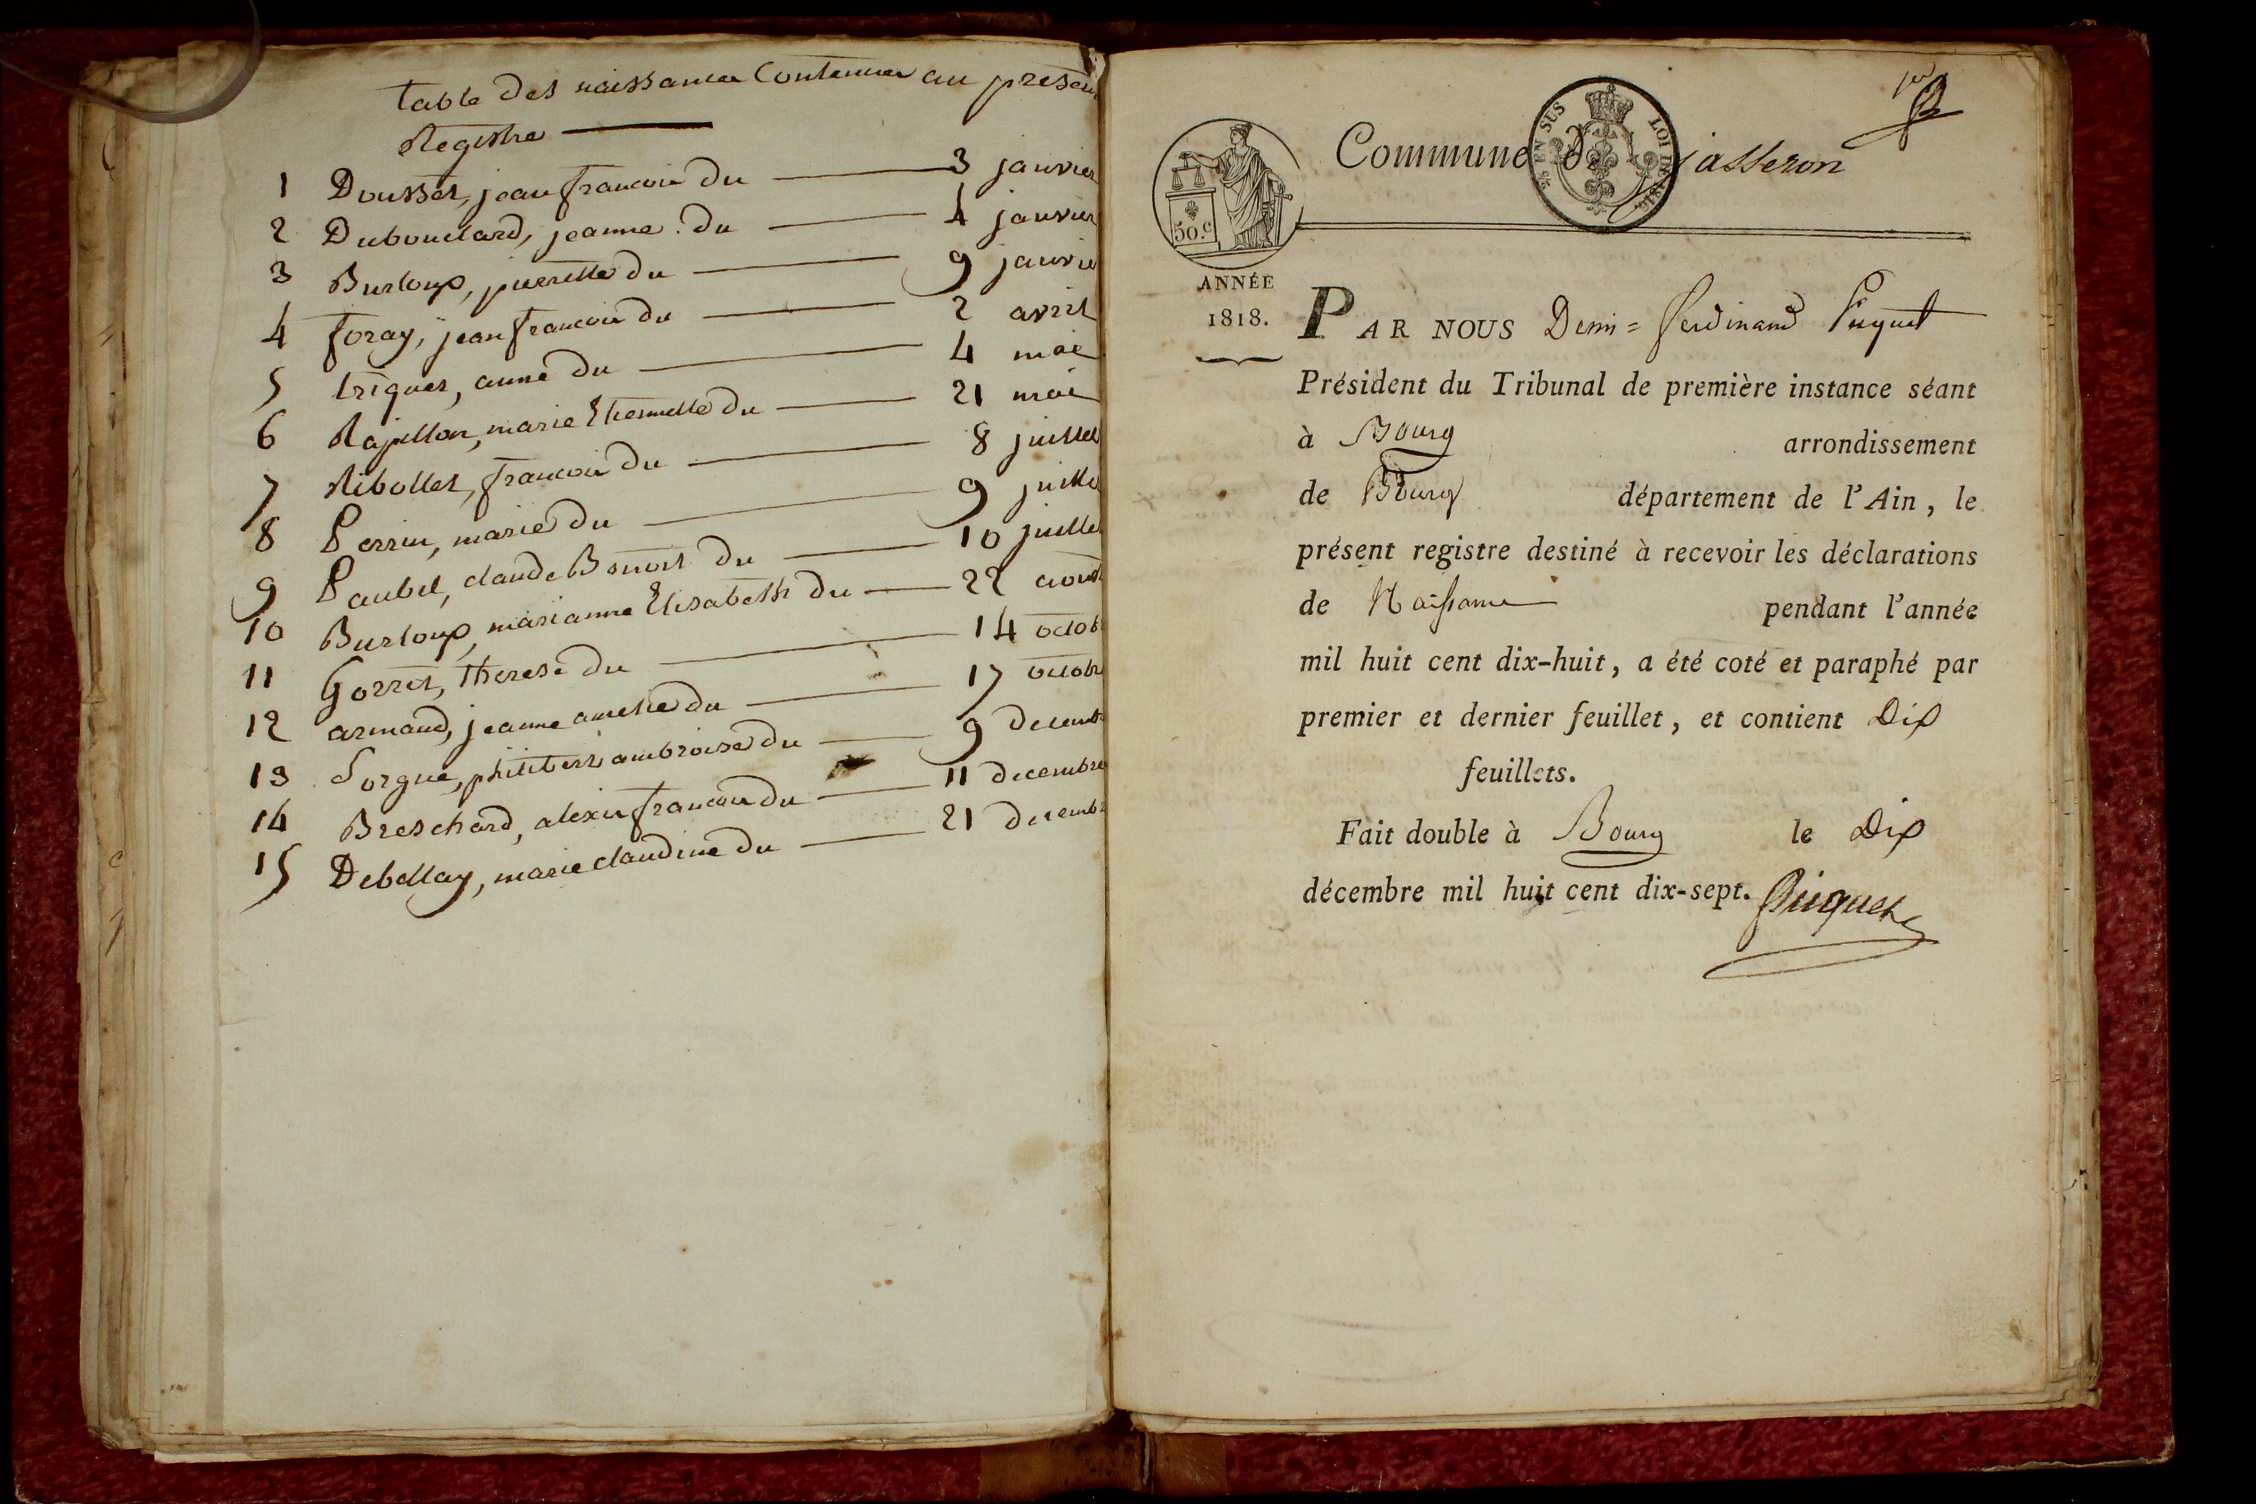 table des naissances Contenues au present
Registre
1 Dousset, jean francois du 3 janvier
2 Dubouclard, jeanne du 4 janvier
3 Burloup, pierrette du 9 janvier
4 foray, jean francois du 2 avril
5 triquet, anne du 4 mai
6 Rapillon, marie Etiennette du 21 mai
7 Ribollet, francois du 8 juillet
8 Perrin, marie du 9 juillet
9 Paubel, claude Benoit du 10 juillet
10 Burloup, marianne Elisabeth du 22 aoust
11 Gorret, therese du 14 octob
12 armand, jeanne amelie du 17 octobr
13 Sorgue, philibert ambroise du 9 decemb
14 Breschard, alexis francois du 11 decembre
15 Debellay, marie claudine du 21 decemb
1er
Commune de jasseron
EN SUS
LOI DE 1816.
50.c
ANNÉE
1818.
PAR NOUS Denis = Ferdinand Piquet
Président du Tribunal de première instance séant
à Bourg arrondissement
de Bourg département de l'Ain, le
présent registre destiné à recevoir les déclarations
de Naissance pendant l'année
mil huit cent dix-huit, a été coté et paraphé par
premier et dernier feuillet, et contient Dix
feuillets.
Fait double à Bourg le Dix
décembre mil huit cent dix-sept. Piquet